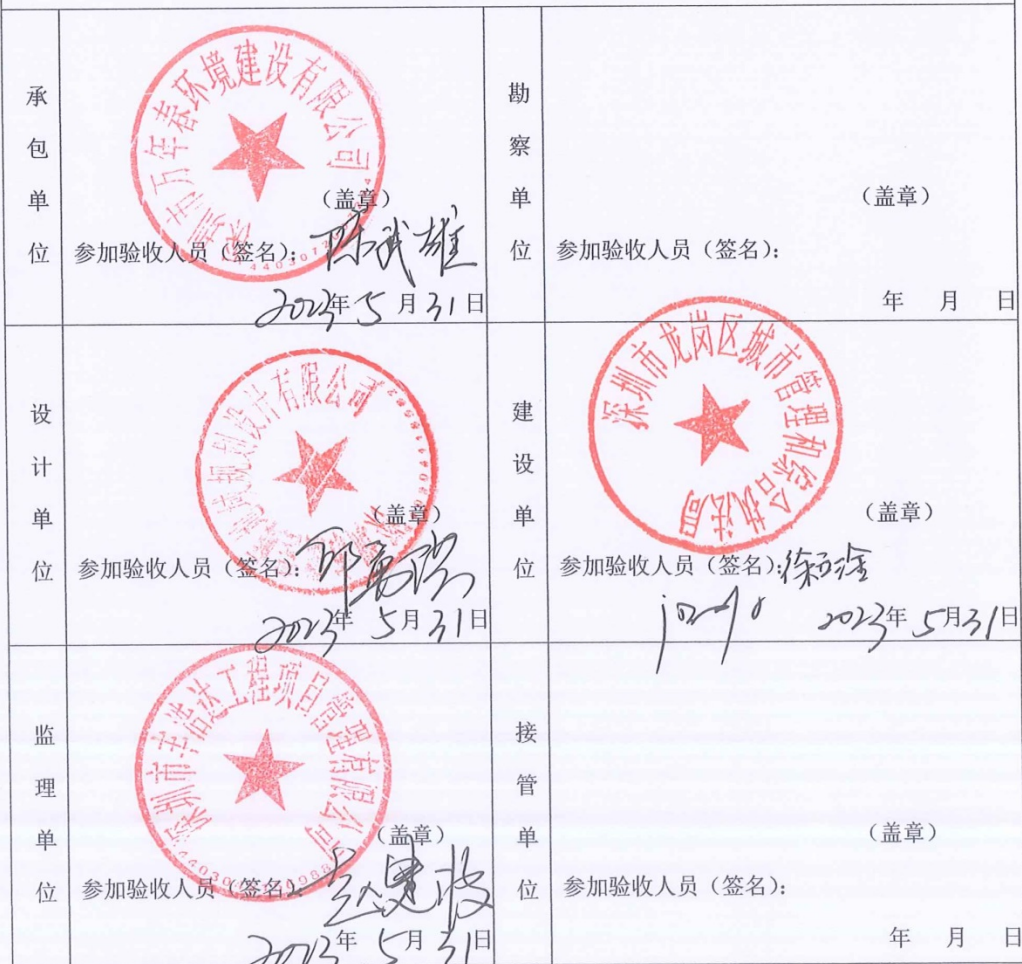 承包单位
深圳市万年春环境建设有限公司
（盖章）
参加验收人员（签名）：陈武雄
2023年5月31日
勘察单位
（盖章）
参加验收人员（签名）：
年 月 日
设计单位
规划设计有限公司
（盖章）
参加验收人员（签名）：
2023年5月31日
建设单位
深圳市龙岗区城市管理和综合执法局
（盖章）
参加验收人员（签名）：
2023年5月31日
监理单位
深圳市丰浩达工程项目管理有限公司
（盖章）
参加验收人员（签名）：
2023年5月31日
接管单位
（盖章）
参加验收人员（签名）：
年 月 日